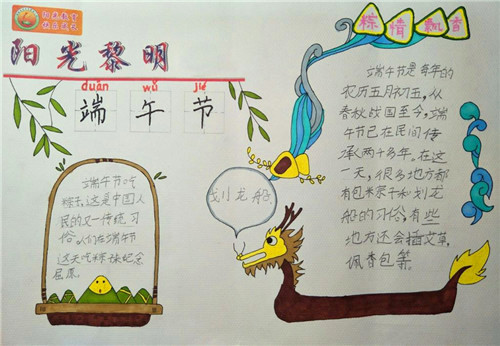 阳光教育
快乐成长
阳光黎明
duān wǔ jié
端 午 节
端午节吃
粽子,这是中国人
民的又一传统习
俗。人们在端午节
这天吃粽来纪念
屈原。
划龙船
粽情飘香
端午节是每年的
农历五月初五,从
春秋战国至今,端
午节已在民间传
承两千多年。在这
一天,很多地方都
有包粽子和划龙
船的习俗,有些
地方还会插艾草,
佩香包等。